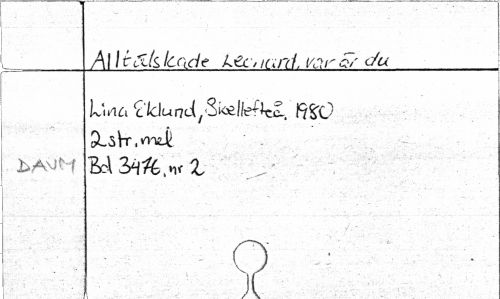 Alltälskade Leonard, var är du
Lina Eklund, Skellefteå, 1980
2 str, mel
DAUM Bd 3476, nr 2